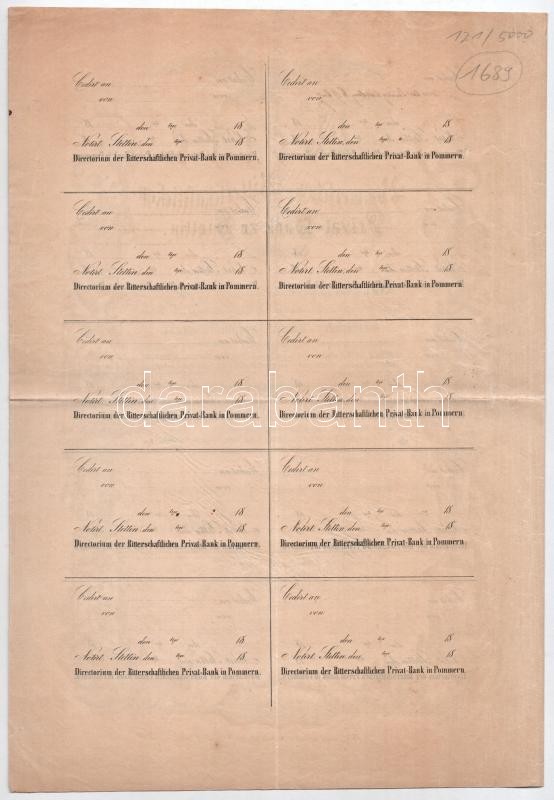 121/5000
1689
Cedirt an
von
den 18
Notirt Stettin, den 18
Directorium der Ritterschaftlichen Privat-Bank in Pommern.
Cedirt an
von
den 18
Notirt Stettin, den 18
Directorium der Ritterschaftlichen Privat-Bank in Pommern.
Cedirt an
von
den 18
Notirt Stettin, den 18
Directorium der Ritterschaftlichen Privat-Bank in Pommern.
Cedirt an
von
den 18
Notirt Stettin, den 18
Directorium der Ritterschaftlichen Privat-Bank in Pommern.
Cedirt an
von
den 18
Notirt Stettin, den 18
Directorium der Ritterschaftlichen Privat-Bank in Pommern.
Cedirt an
von
den 18
Notirt Stettin, den 18
Directorium der Ritterschaftlichen Privat-Bank in Pommern.
darabanth
Cedirt an
von
den 18
Notirt Stettin, den 18
Directorium der Ritterschaftlichen Privat-Bank in Pommern.
Cedirt an
von
den 18
Notirt Stettin, den 18
Directorium der Ritterschaftlichen Privat-Bank in Pommern.
Cedirt an
von
den 18
Notirt Stettin, den 18
Directorium der Ritterschaftlichen Privat-Bank in Pommern.
Cedirt an
von
den 18
Notirt Stettin, den 18
Directorium der Ritterschaftlichen Privat-Bank in Pommern.